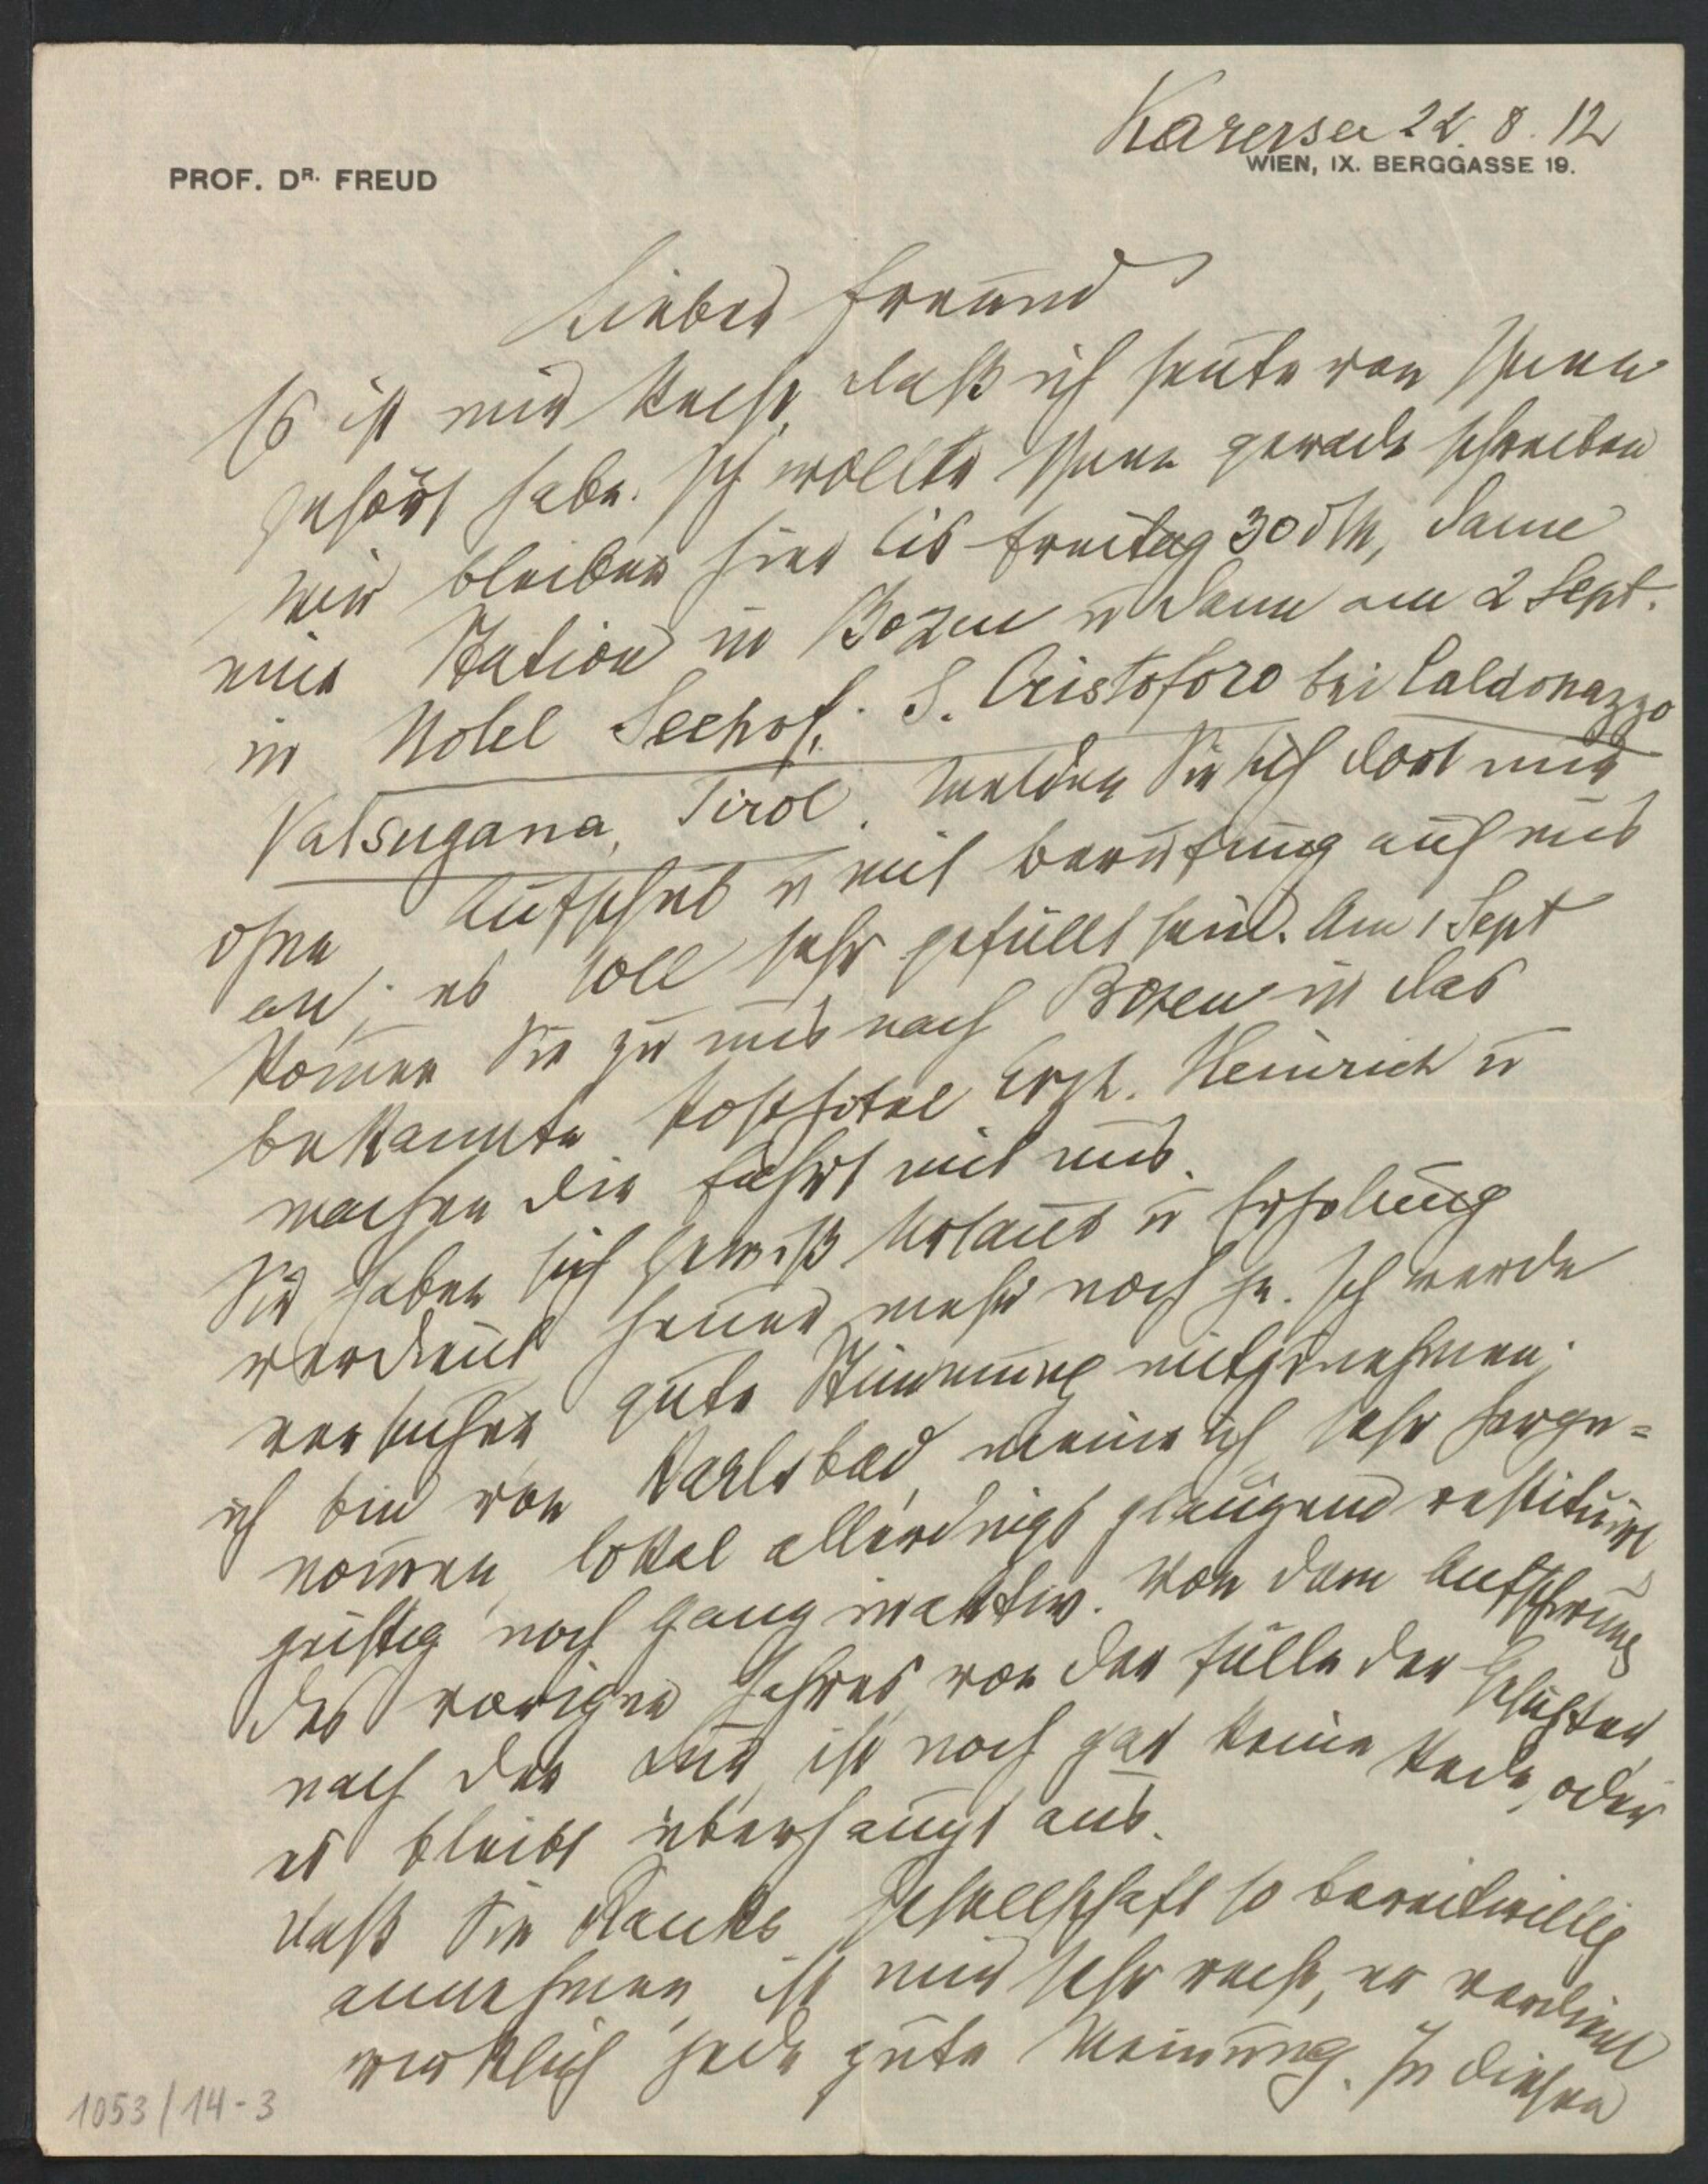 Karersee 22. 8. 12
WIEN, IX. BERGGASSE 19.
PROF. DR. FREUD
Lieber Freund
Es ist mir recht, daß ich heute von Ihnen
gehört habe. Ich wollte Ihnen gerade schreiben
Wir bleiben hier bis Freitag 30 d M, dann
eine Station in Bozen u dann am 2 Sept.
in Hotel Seehof, S. Cristoforo bei Caldonazzo
Valsugana, Tirol. Melden Sie sich dort nur
ohne Aufschub u mit Berufung auf uns
an; es soll sehr gefüllt sein. Am 1 Sept
kommen Sie zu uns nach Bozen in das
bekannte Posthotel Erzh. Heinrich u
machen die Fahrt mit uns.
Sie haben sich gewiß Urlaub u Erholung
verdient, heuer mehr noch je. Ich werde
versuchen gute Stimmung mitzunehmen;
ich bin von Karlsbad, meine ich sehr herge=
nommen, lokal allerdings glänzend restituirt,
geistig noch ganz inaktiv. Von dem Aufschwung
des vorigen Jahres, von der Fülle der
nach der Kur, ist noch gar keine Rede, oder
es bleibt überhaupt aus.
Daß Sie Ranks Gesellschaft so bereitwillig
annehmen, ist mir sehr recht, er verdient
wirklich jede gute Meinung. In diesen
1053/14-3